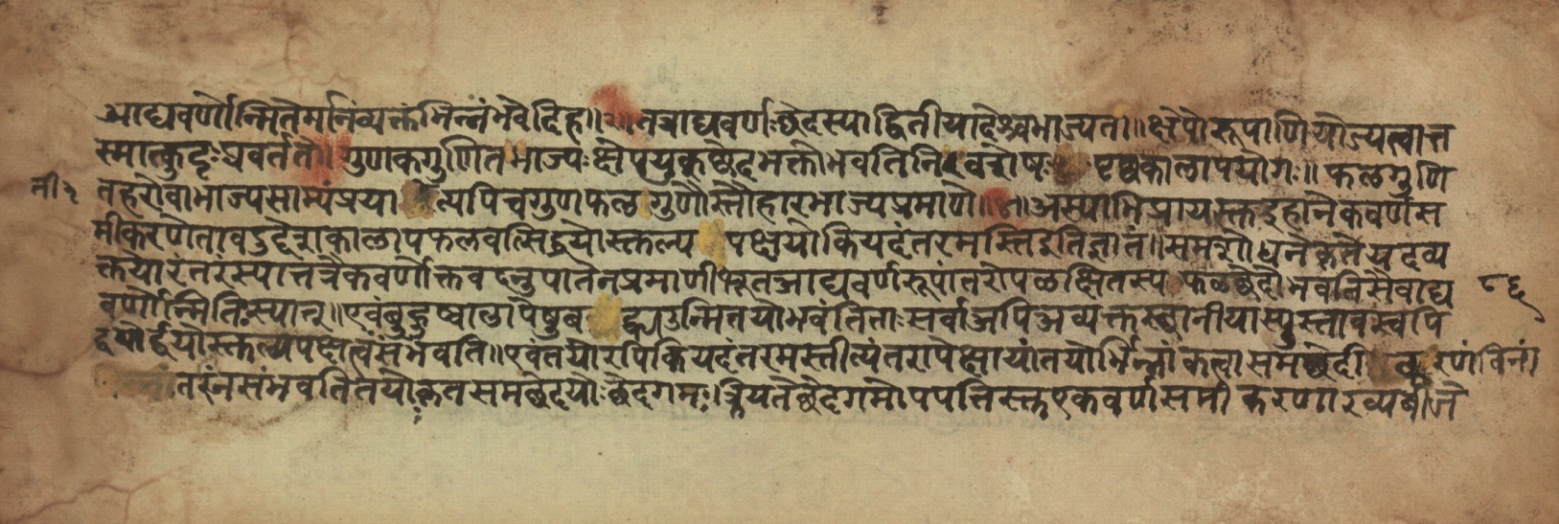 आद्यवर्णोन्मितेर्मानंव्यक्तंभिन्नंभवेदिह॥ तत्राद्यवर्णश्छेदस्याद्द्वितीयादेश्चभाज्यता॥क्षेपोरूपाणियोज्यत्वात्त
स्मात्कुट्टःप्रवर्तते॥गुणकगुणितभाज्यःक्षेपयुक्छेदभक्तोभवतिनिरवशेषः पृष्टकालापयोगः॥फलगुणि
तहरोवाभाज्यसाम्यंप्रया त्यपिचगुणफलगुणौस्तौहारभाज्यप्रमाणे॥ अस्याभिप्रायस्तुइहानेकवर्णस
मीकरणेतावदुद्देशकालापफलवत्सिद्धयोस्तुल्य पक्षयोःकियदंतरमस्तिइतिज्ञातं॥समशोधनेकृतेयदव्य
क्तयोरंतरंस्यात्तत्रैकवर्णोक्तवदनुपातेनप्रमाणीभूतआद्यवर्णरूपांतरोपलक्षितस्य फलछेदोभवतिसैवाद्य
वर्णोन्मितिःस्यात्॥एवंबहुष्वालापेषुब ह्व्यउन्मितयोभवंतिताःसर्वाअपिअव्यक्तस्थानीयास्युस्तावत्स्वपि
द्वयोर्द्वयोस्तुल्यपक्षत्वंसंभवति॥एवंतयोरपिकियदंतरमस्तीत्यंतरापेक्षायांतयोर्भिन्नांकत्वात्समच्छेदी करणंविनां
तरंनसंभवतितयोःकृतसमछेदयोःछेदगमः।क्रियतेछेदगमोपपत्तिस्तुएकवर्णसमीकरणाख्यबीजे
८६